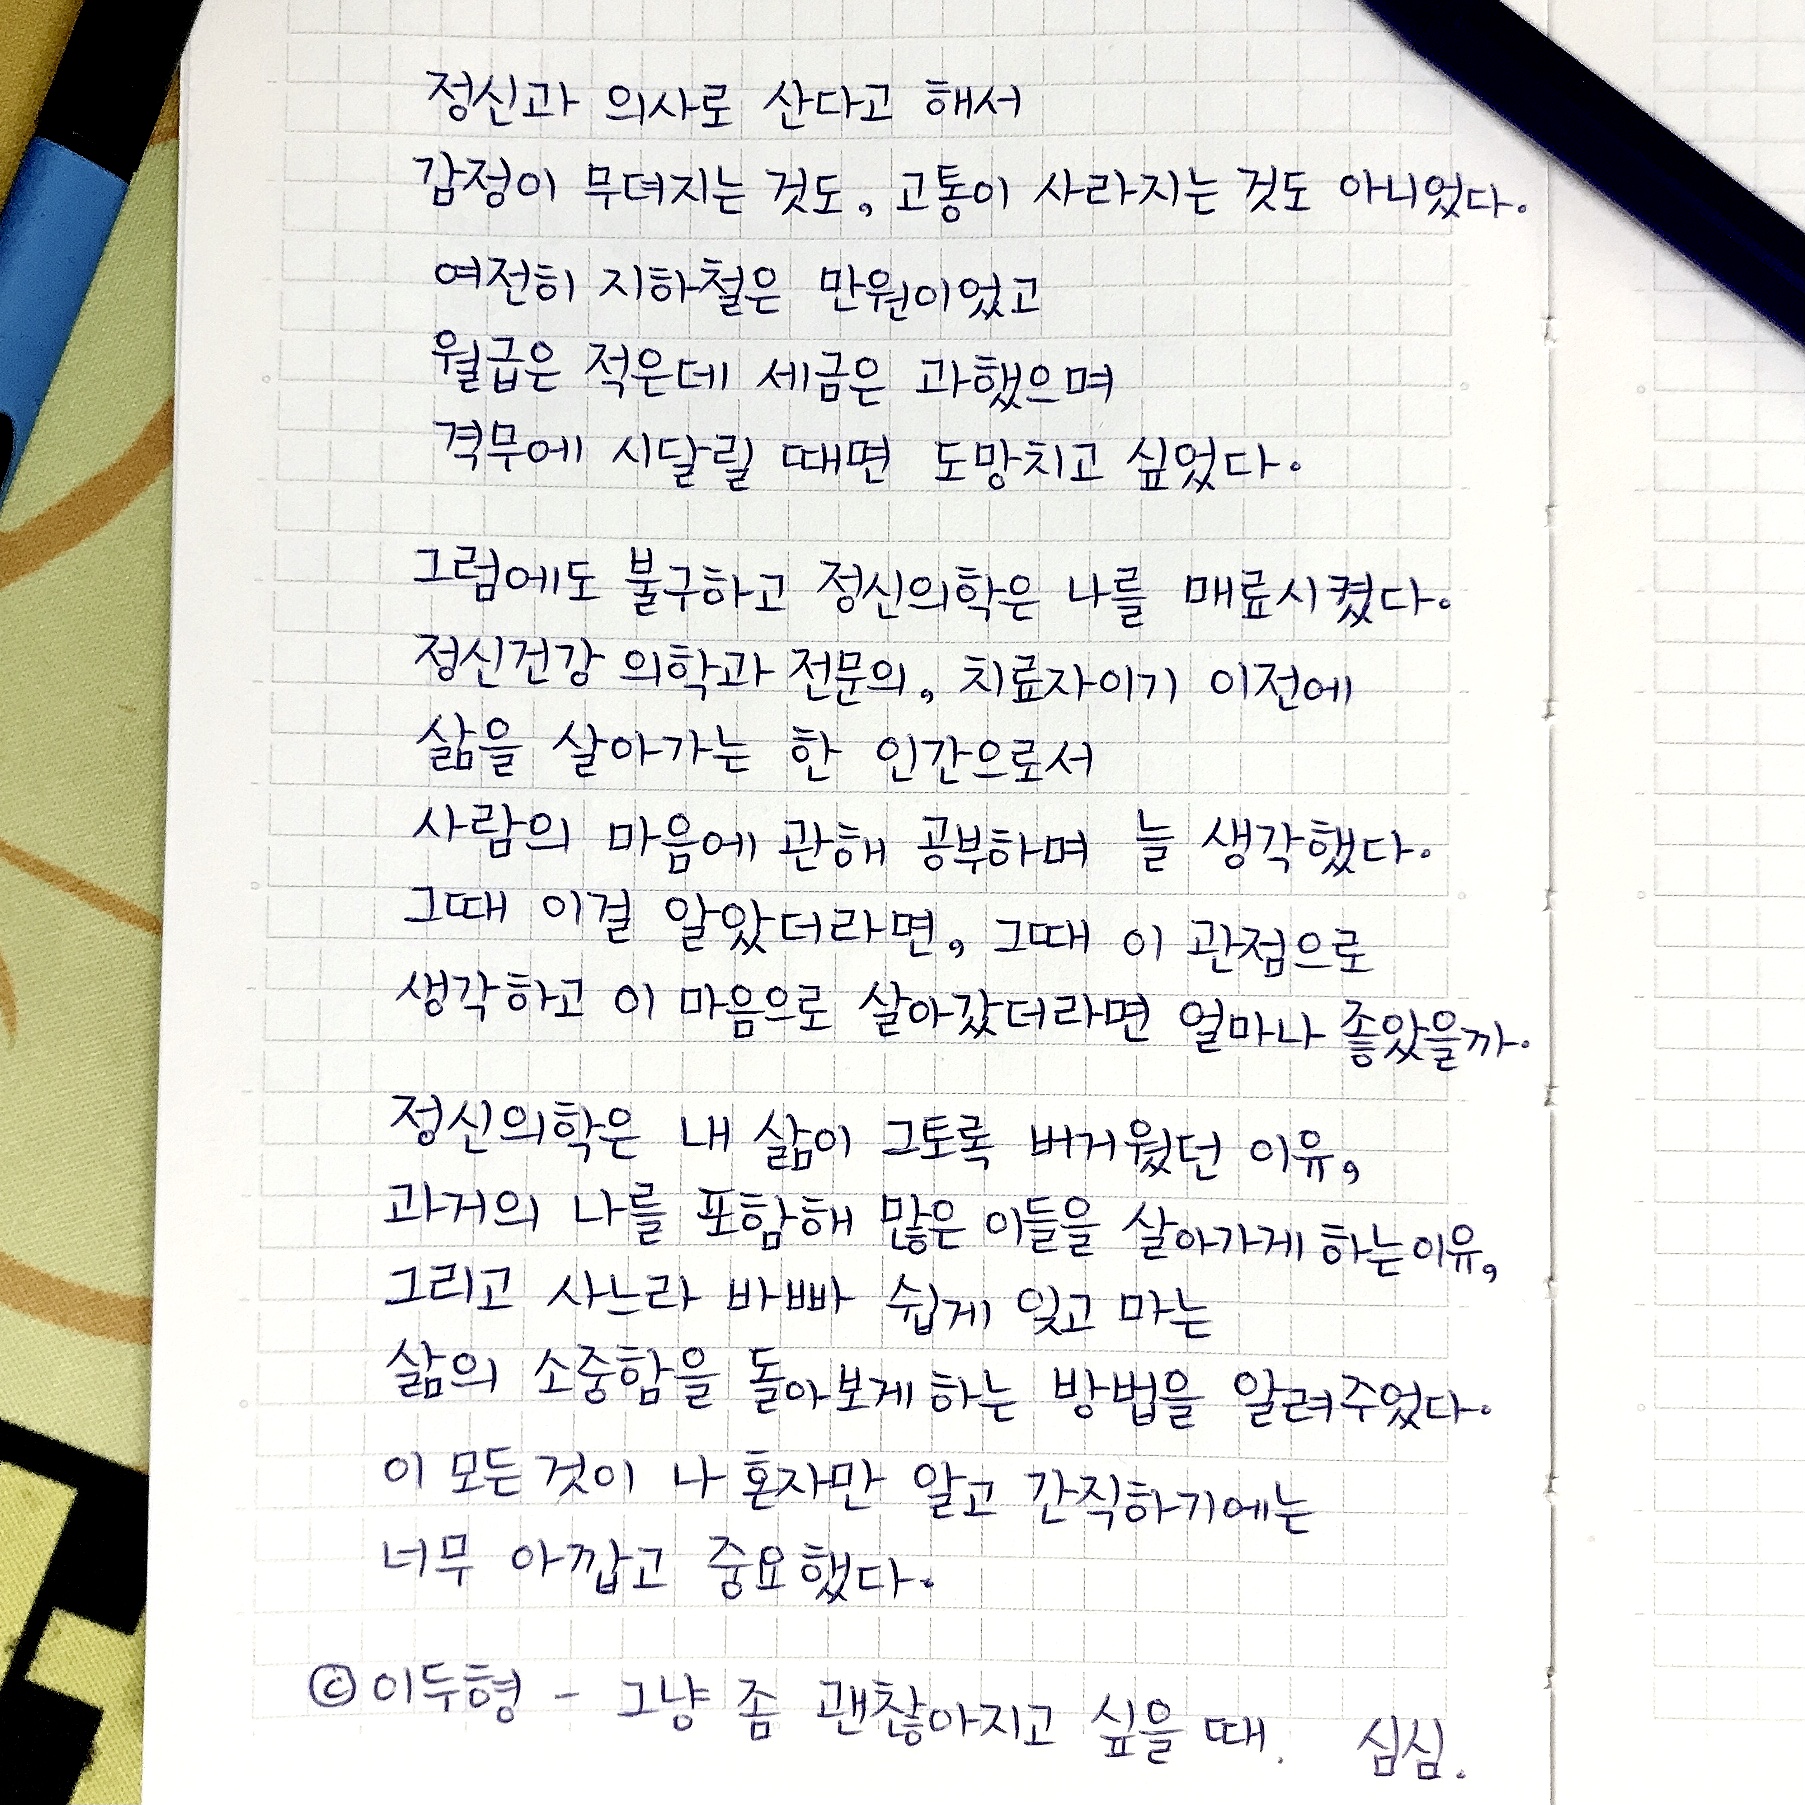 정신과 의사로 산다고 해서
감정이 무뎌지는 것도, 고통이 사라지는 것도 아니었다.
여전히 지하철은 만원이었고
월급은 적은데 세금은 과했으며
격무에 시달릴 때면 도망치고 싶었다.
그럼에도 불구하고 정신의학은 나를 매료시켰다.
정신건강 의학과 전문의, 치료자이기 이전에
삶을 살아가는 한 인간으로서
사람의 마음에 관해 공부하며 늘 생각했다.
그때 이걸 알았더라면, 그때 이 관점으로
생각하고 이 마음으로 살아갔더라면 얼마나 좋았을까.
정신의학은 내 삶이 그토록 버거웠던 이유,
과거의 나를 포함해 많은 이들을 살아가게 하는 이유,
그리고 사느라 바빠 쉽게 잊고 마는
삶의 소중함을 돌아보게 하는 방법을 알려주었다.
이 모든 것이 나 혼자만 알고 간직하기에는
너무 아깝고 중요했다.
ⓒ 이두형 - 그냥 좀 괜찮아지고 싶을 때. 심심.